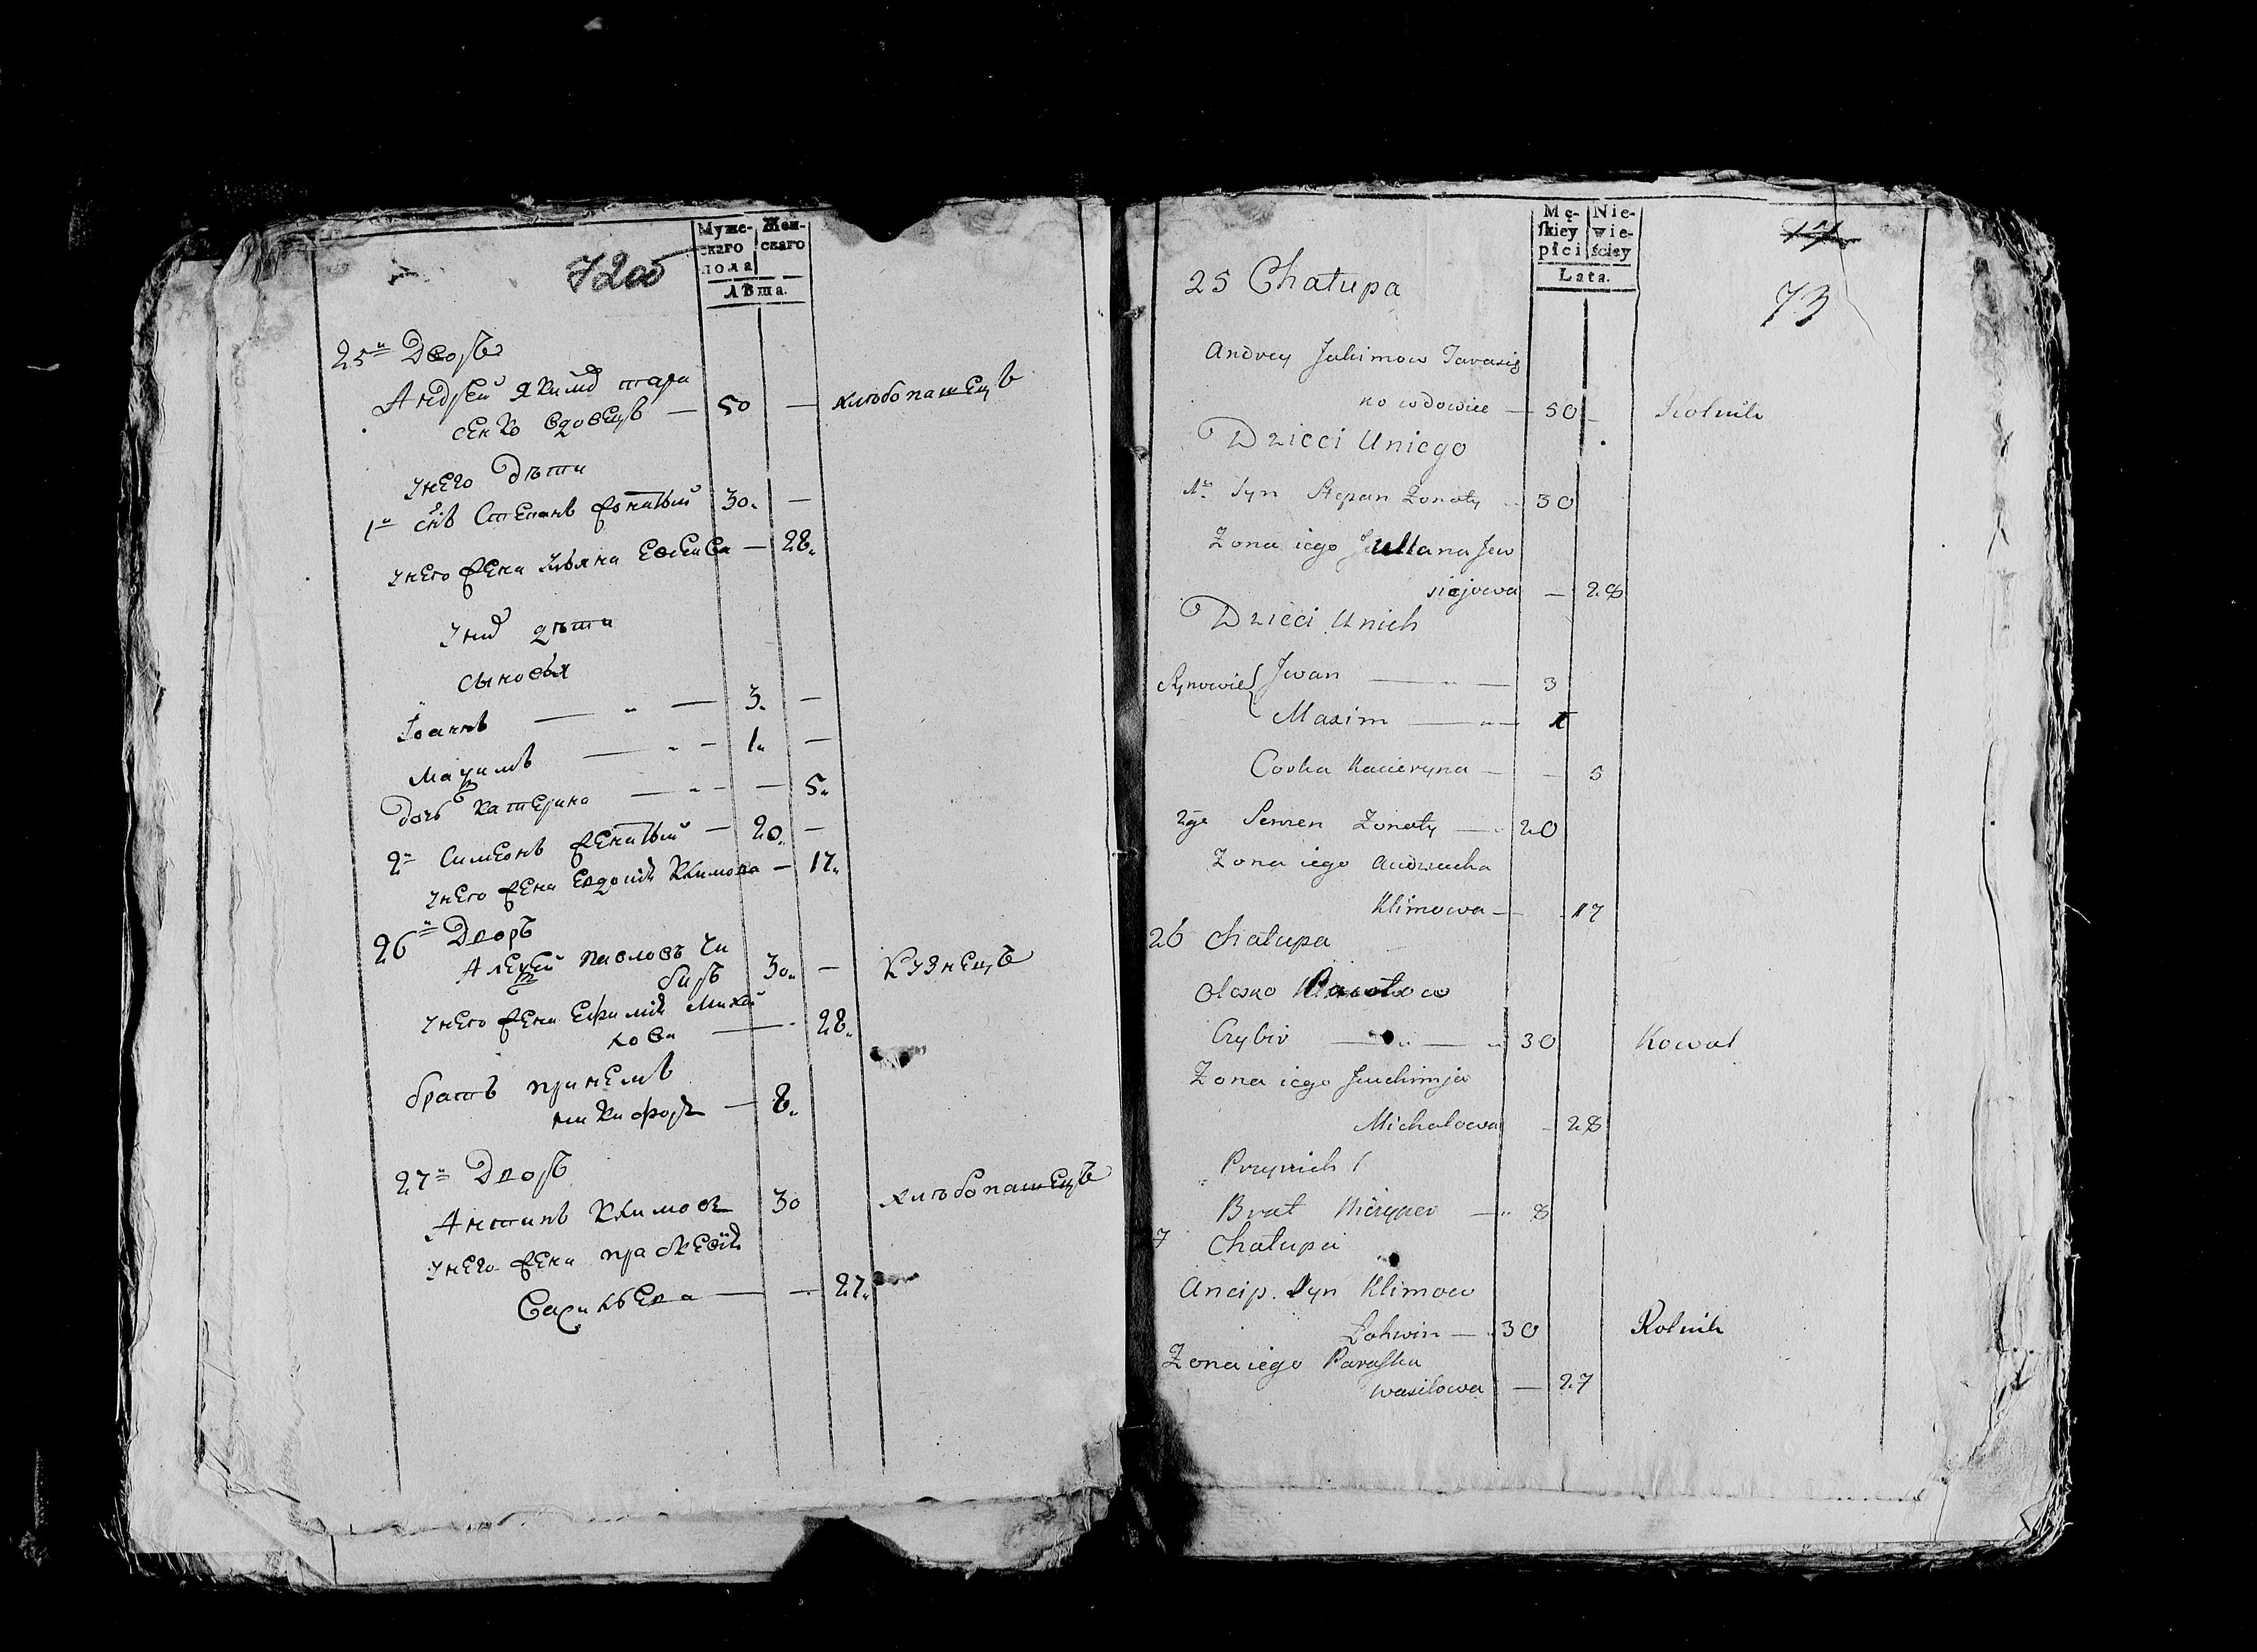 72 об
Муже-
скаго
пола
Жен-
скаго
Лѣта.
25й Дворъ
Андрей Якимов тара
сенко вдовецъ — 50 — хлѣбопашецъ
У него дѣти
1й сн҃ъ Степанъ женатый 30. —
У него жена Ульяна Евсеива — 28.
У них дѣти
сыновья
Іоаннъ — „ — 3. —
Маѯимъ — „ — 1. —
Дочь Катерина — „ — — 5.
2й Симеонъ женатый — 20. —
У него жена Евдокія Климова — 17.
26й Дворъ
Алеѯей Павловъ Чи
бирь 30. — Кузнецъ
У него жена Ефимія Михай
лова — 28.
братъ при немъ
никифоръ — 8.
27й Дворъ
Антипъ Климовъ 30 хлѣбопашецъ
У него жена праскевія
Васильева — — 27.
Mę-
ſkiey
płci
Nie-
wie-
ściey
Lata.
73
25 Chałupa
Andrey Jakimow Tarasię
ko wdowiec — 50 — Rolnik
Dzieci Uniego
1y Syn Stepan Zonaty „ 30
Zona iego Julliana Jew
siejowa — 28
Dzieci Unich
Synowie { Jwan — „ — 3
Maxim — „ — 1
Corka Kacieryna — — 5
2gi Semen Zonaty — „ 20
Zona iego
Klimowa — 17
26 Chałupa
Olexo Pawłow
Czybir — „ — „ 30 Kowal
Zona iego Jeuchimja
Michałowa - 28
Przynich
Brat — „ 8
7 Chałupa
Ancip. Syn Klimow
Łohwin — „ 30 Rolnik
Zona iego Paraſka
wasilowa — 27